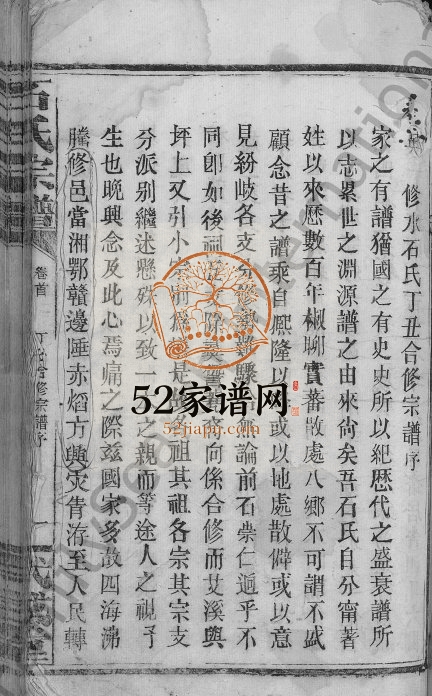 修水石氏丁丑合修宗譜序
家之有譜猶國之有史史所以紀歷代之盛衰譜所
以志累世之淵源譜之由來尚矣吾石氏自分甯著
姓以來歷數百年椒聊實蕃散處八鄉不可謂不盛
顧念昔之譜乘自熙隆以 或以地處散僻或以意
見紛岐各支分修 論前石崇仁迥乎不
同卽如後祠 尚係合修而艾溪與
坪上又引小宗 是 祖其祖各宗其宗支
分派別繼述懸殊以致一 之親而等途人之視予
生也晚興念及此心焉痛之際茲國家多故四海沸
騰修邑當湘鄂贛邊陲赤熖方興灾眚洊至人民轉
石氏宗譜
卷首
丁丑合修宗譜序
一
52家谱网
52jiapu.com